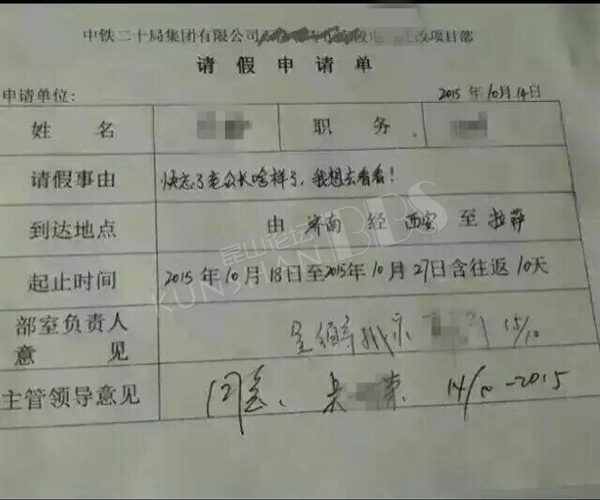 中铁二十局集团有限公司 改项目部
请假申请单
申请单位: 2015年10月14日
姓名 职务
请假事由 快忘了老公长啥样了,我想去看看!
到达地点 由 济南 经 西安 至 拉萨
起止时间 2015年10月18日至2015年10月27日含往返10天
部室负责人
意见 呈领导批示 15/10
主管领导意见 同意、 14/10-2015
昆山论坛
KUNSHAN BBS